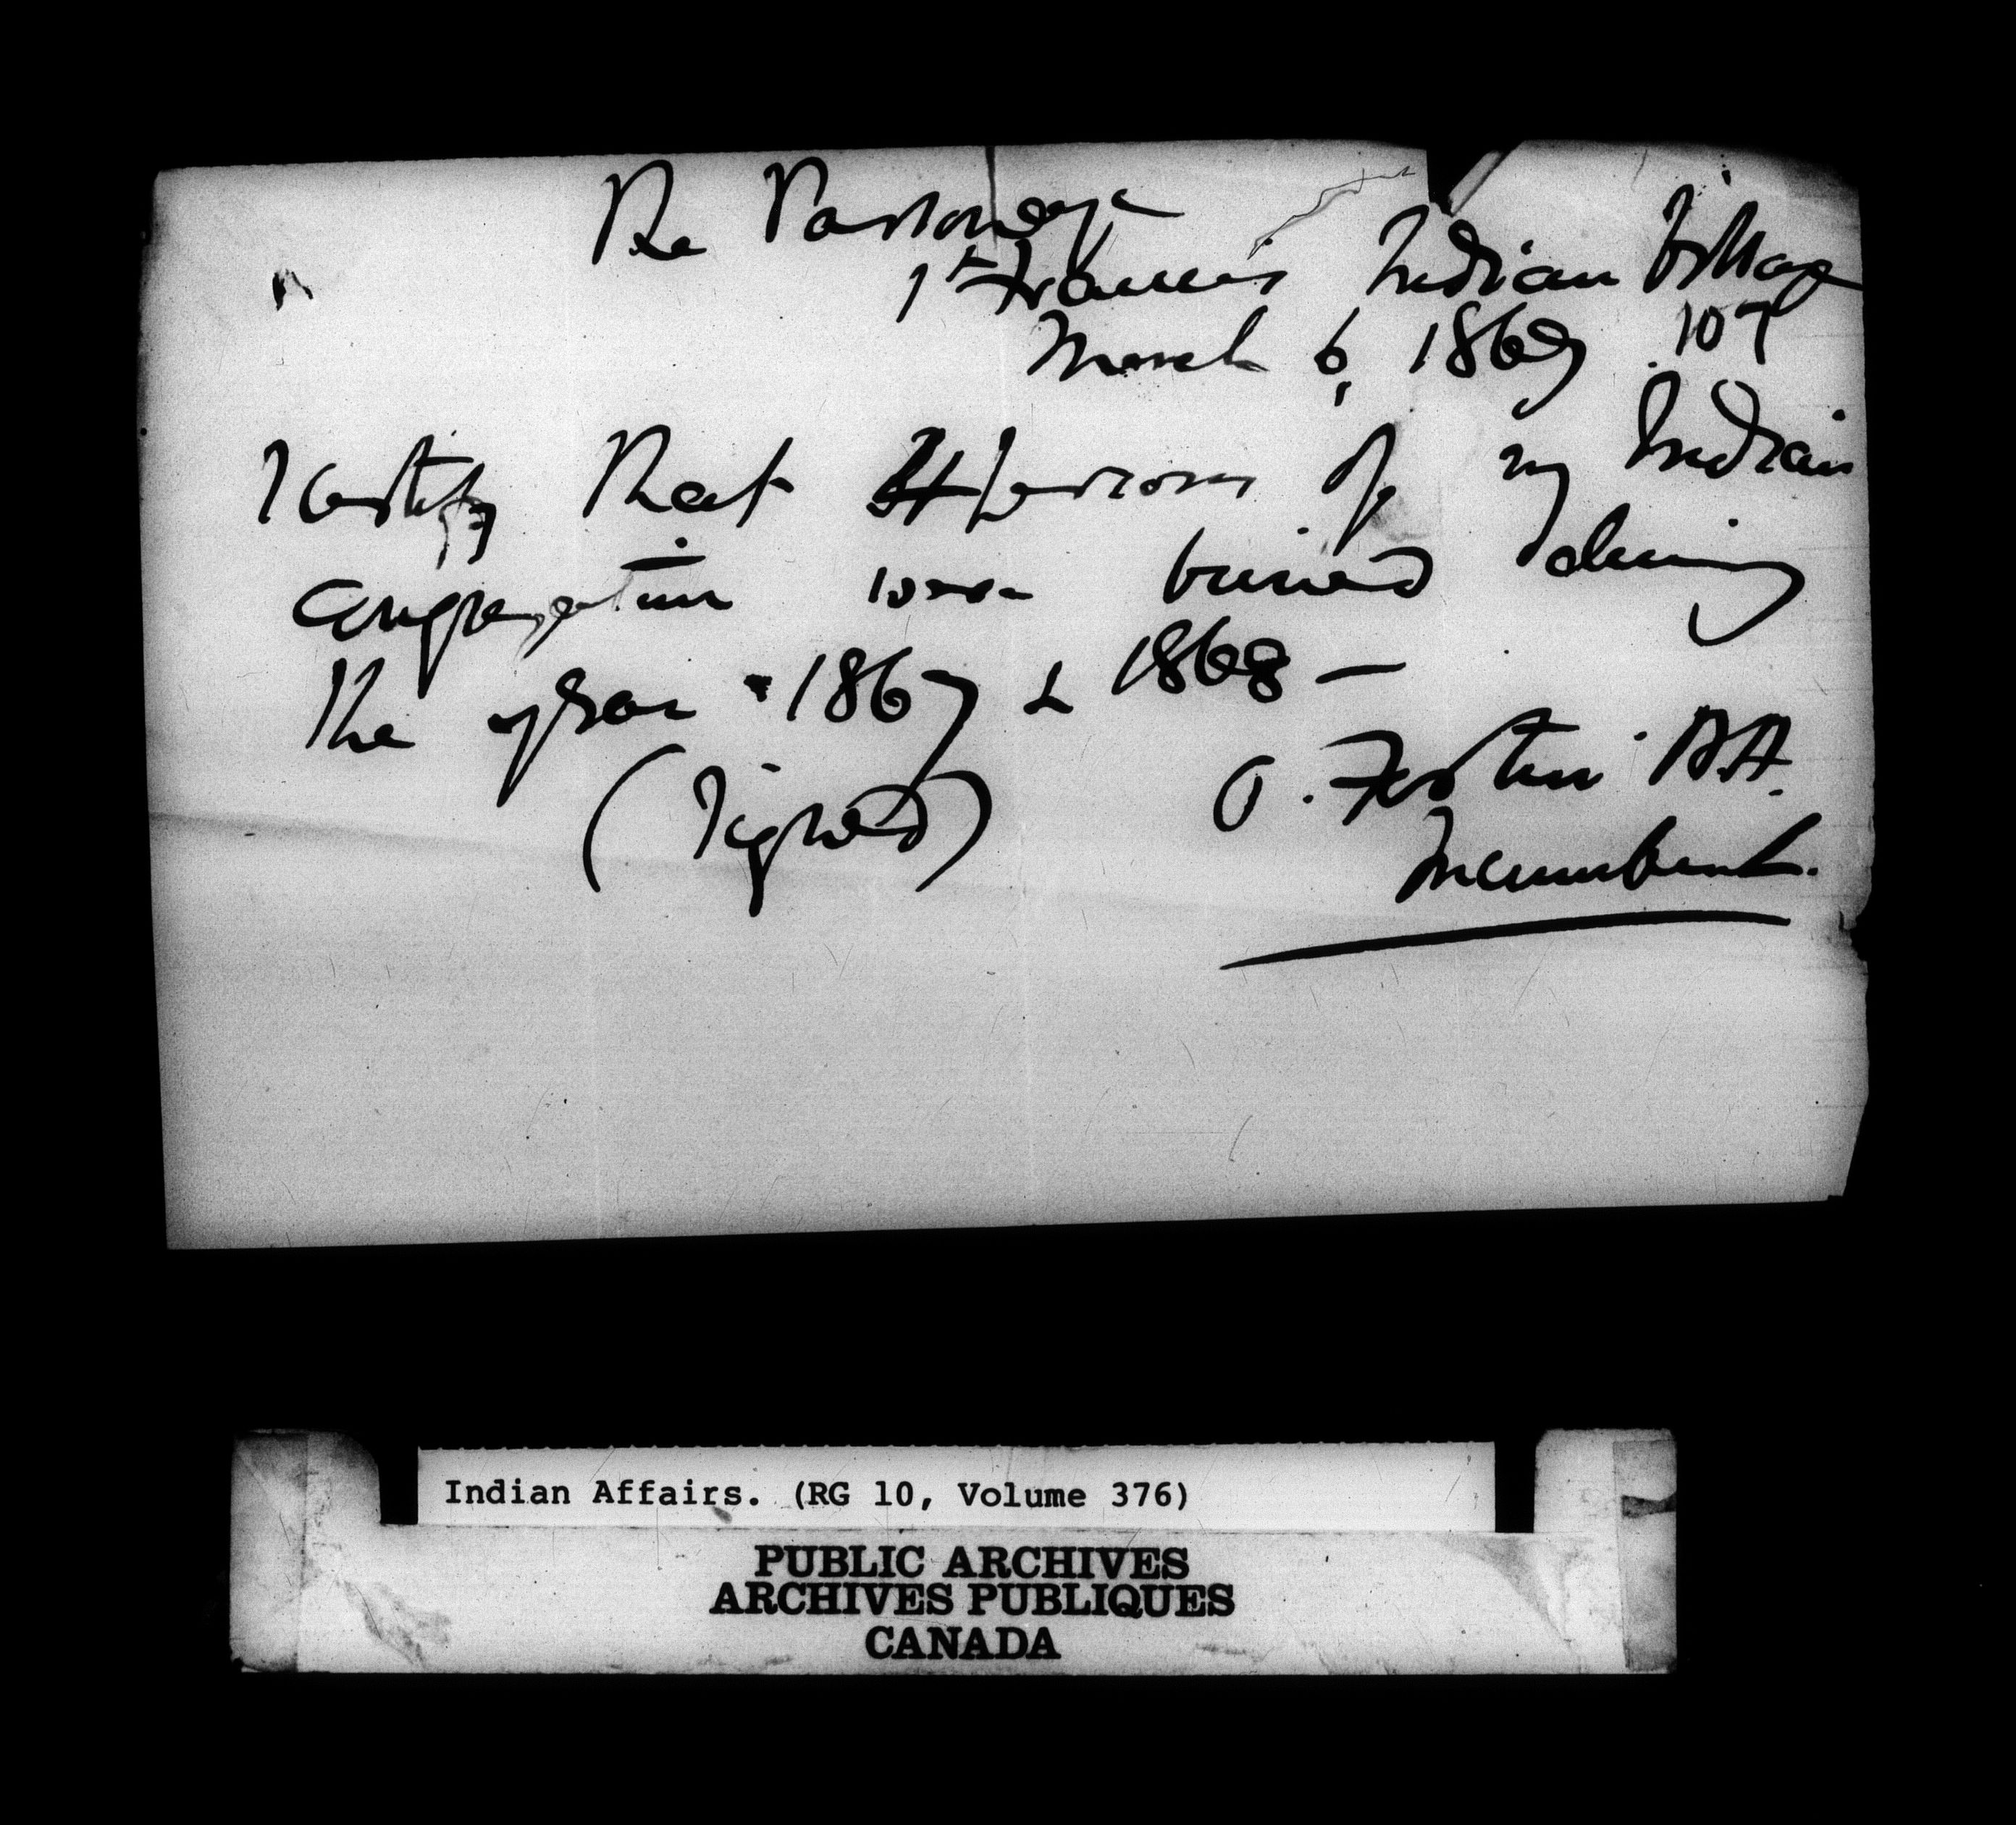 The Parsonage
St Francis Indian Village
March 6, 1869 107
I certify that persons of my Indian
Congregation were buried during
the year 1867 & 1868 —
(Signed) O. Fortin BA.
Incumbent.
Indian Affairs. (RG 10, Volume 376)
PUBLIC ARCHIVES
ARCHIVES PUBLIQUES
CANADA